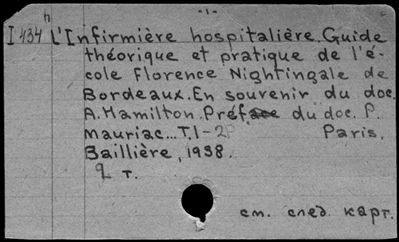 -1-
h
I 434 L'Infirmière hospitalière. Guide
théorique et pratique de l'é-
cole Florence Nightingale de
Bordeaux. En souvenir du doc.
A. Hamilton. Préface du doc. P.
Mauriac... T. 1-2 Paris,
Baillière, 1938.
2 т.
см. след. карт.